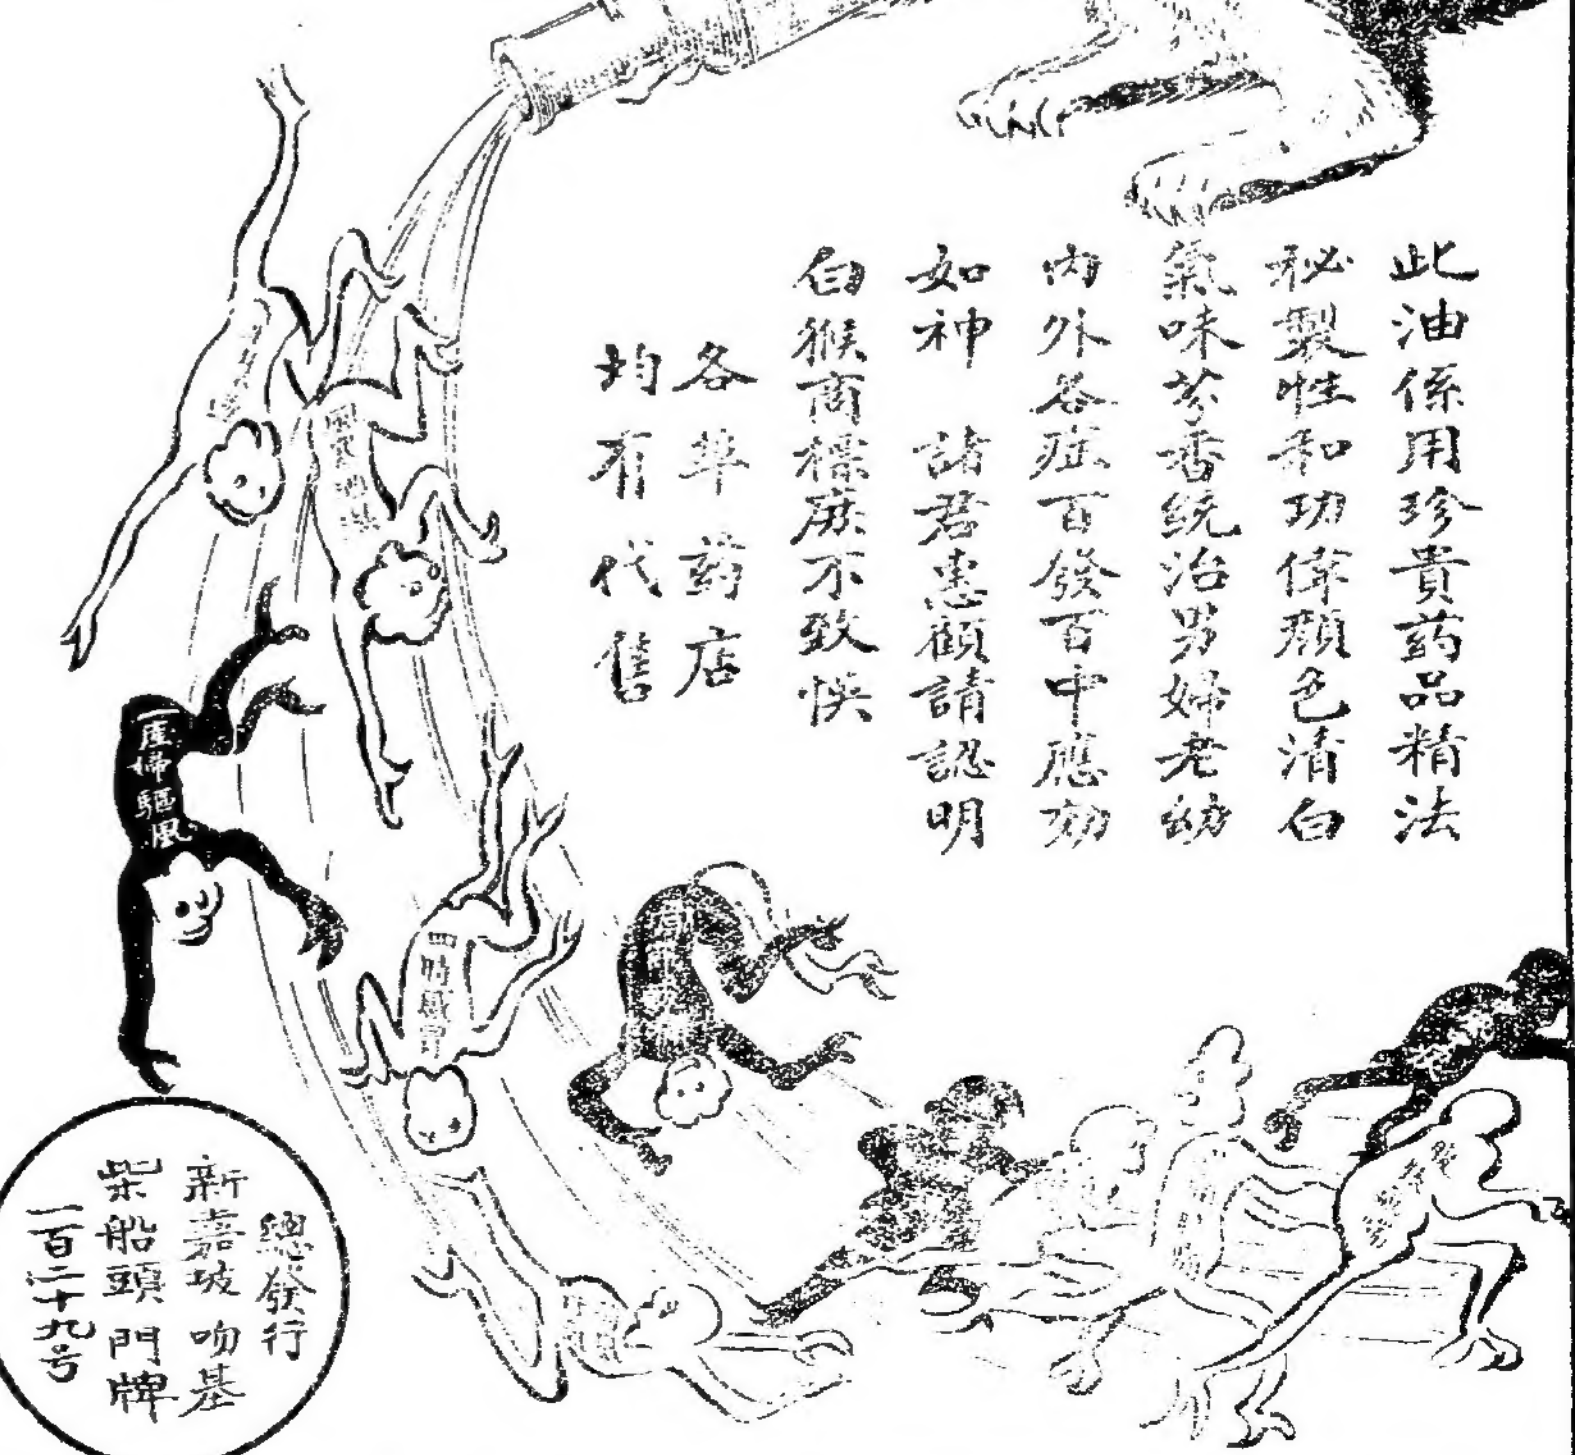 此油係用珍貴药品精法
秘製性和功偉顏色清白
氣味芬香統治男婦老幼
內外各症百發百中應効
如神　諸君惠顧請認明
白猴商標庶不致悞
各埠药店
均有代售
產婦驅風
四時感冒
總發行
新嘉坡吻基
柴船頭門牌
一百二十九号